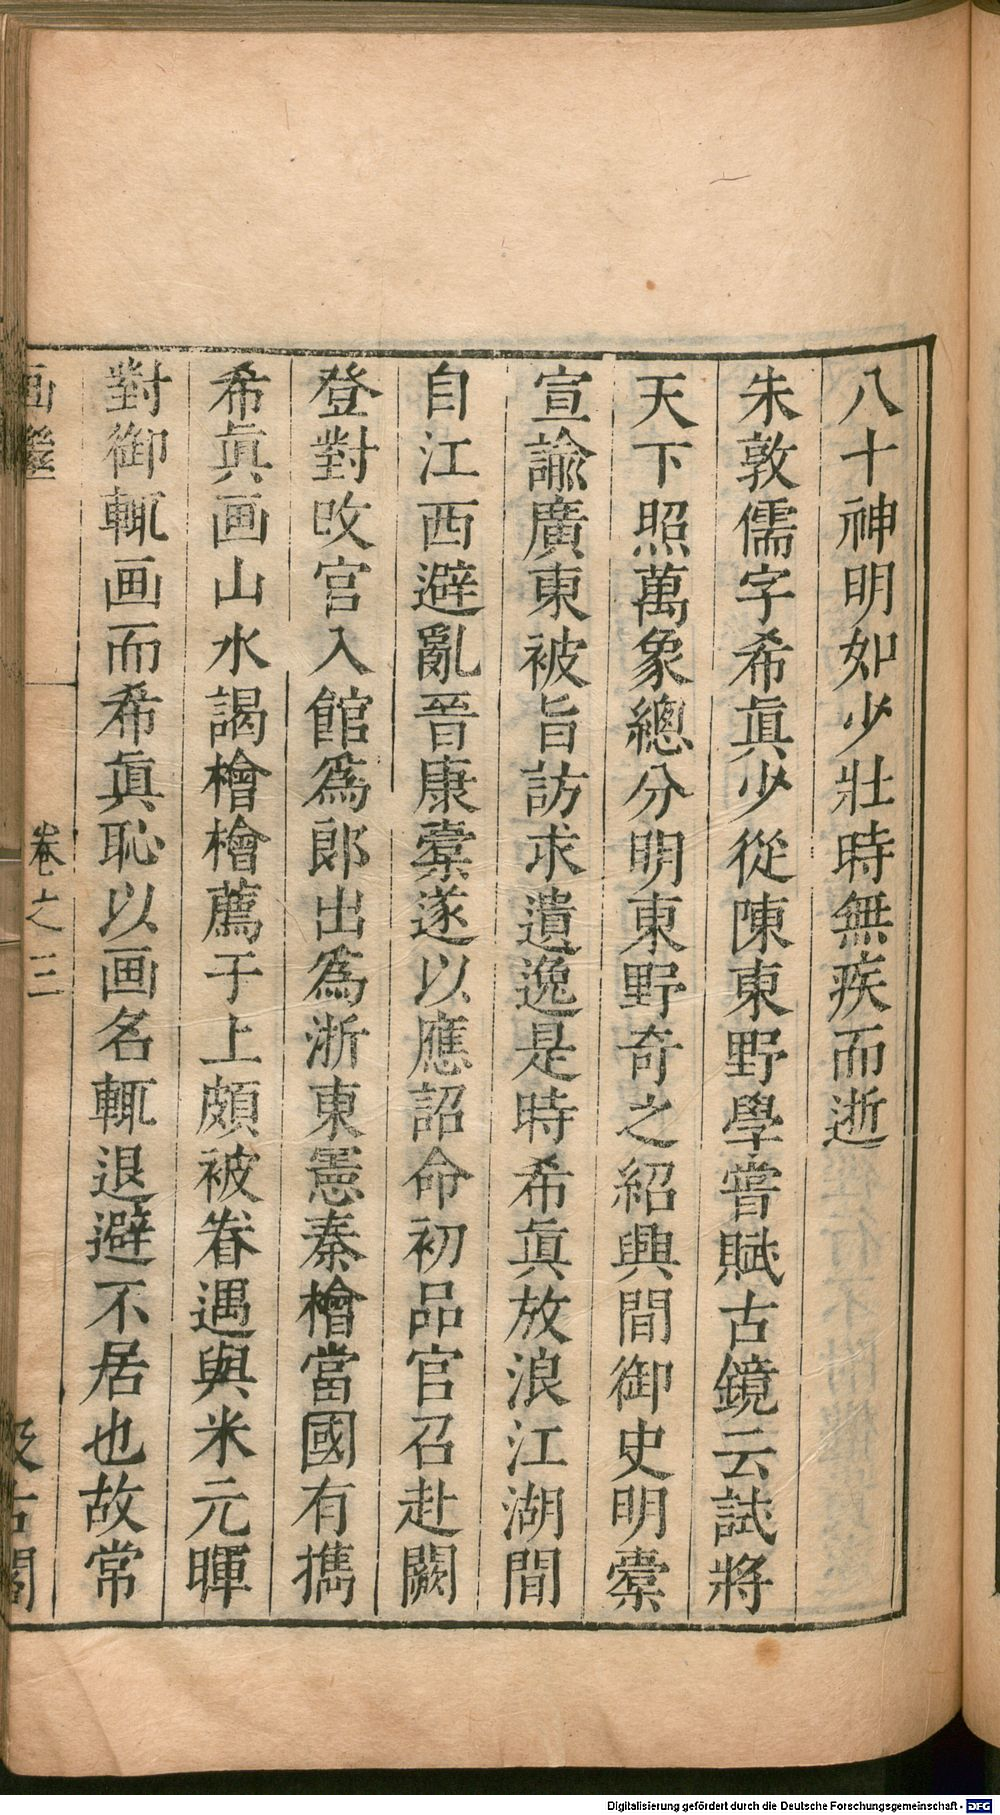 八十神明如少壯時無疾而逝
朱敦儒字希眞少從陳東野學嘗賦古鏡云試將
天下照萬象總分明東野奇之紹興間御史明橐
宣諭廣東被旨訪求遺逸是時希眞放浪江湖間
自江西避亂晉康橐遂以應詔命初品官召赴闕
登對改官入館爲郎出爲浙東憲秦檜當國有攜
希眞画山水謁檜檜薦于上頗被眷遇與米元暉
對御輒画而希眞恥以画名輒退避不居也故常
画繼 卷之三 汲古閣
Digitalisierung gefördert durch die Deutsche Forschungsgemeinschaft - DFG